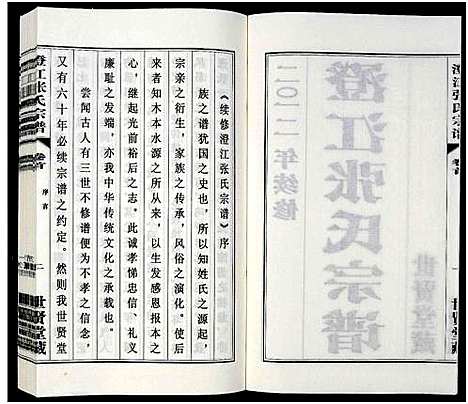 澄江张氏宗谱
卷首
世贤堂藏
澄江张氏宗谱
二〇一二年续修
世贤堂藏
《续修澄江张氏宗谱》序
族之谱犹国之史也，所以知姓氏之源起，
宗亲之衍生，家族之传承，风俗之演化。使后
来者知木本水源之所从来，以生发感恩报本之
心，继起光前裕后之志。此诚孝悌忠信、礼义
廉耻之发端，亦我中华传统文化之承载也。
尝闻古人有三世不修谱便为不孝之信念，
又有六十年必续宗谱之约定。然则我世贤堂
澄江张氏宗谱
卷首
序言
二
世贤堂藏